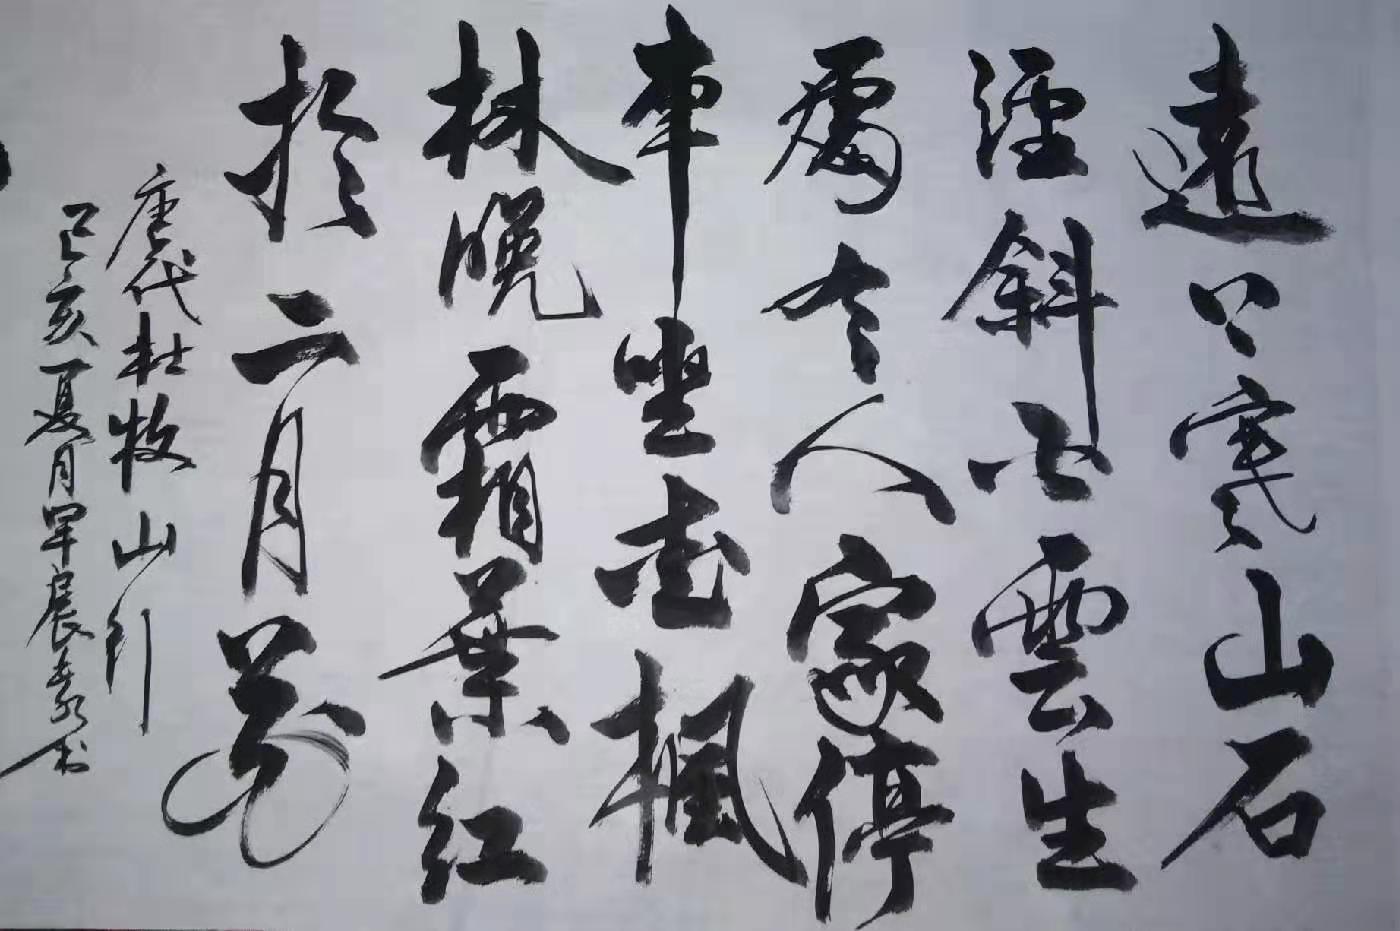 遠上寒山石
徑斜白雲生
處有人家停
車坐愛楓
林晚霜葉紅
於二月花
唐代杜牧山行
己亥夏月罕展泰书